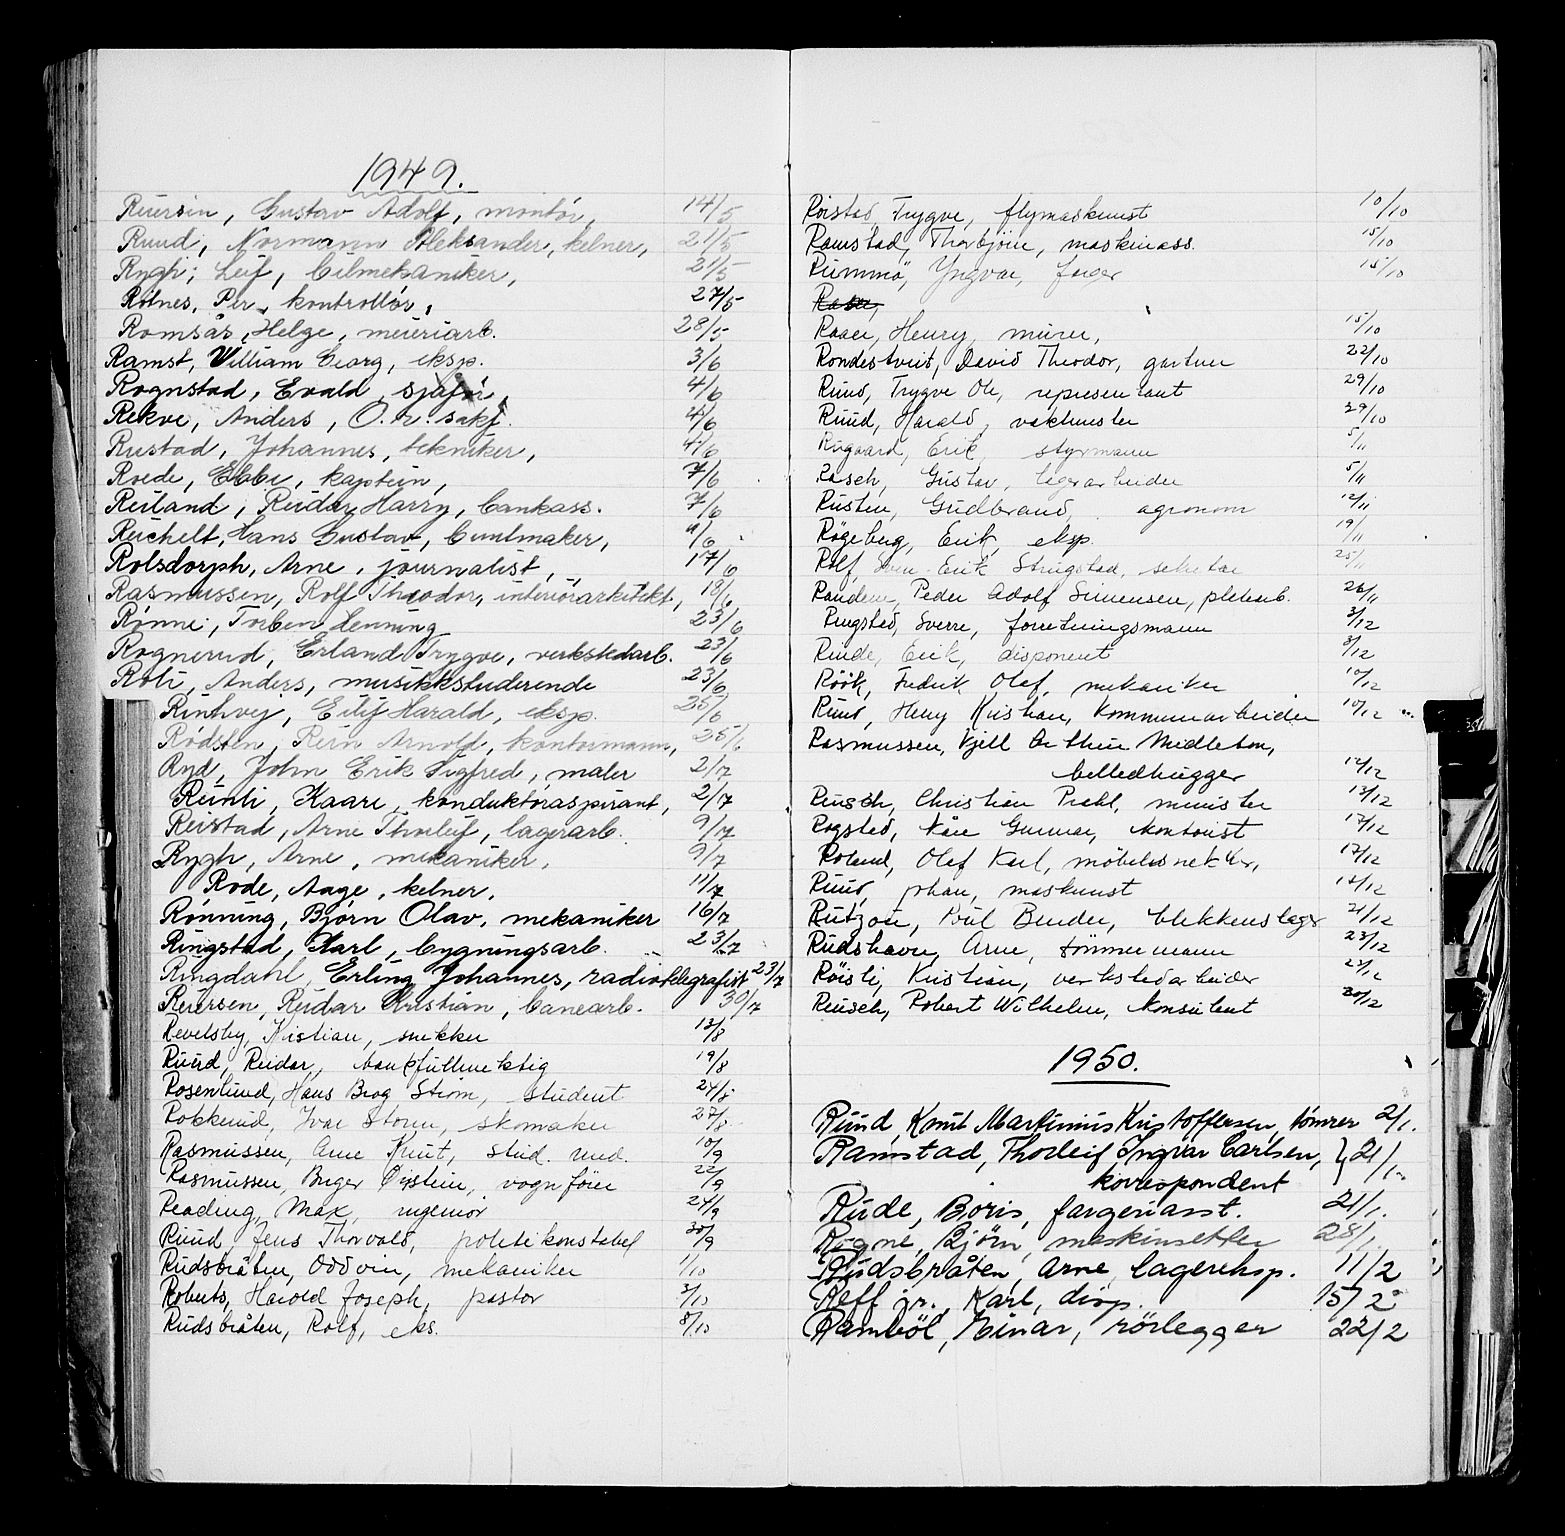 1949.
Ruersin, Gustav Adolf, montør, 14/5
Ruud, Normann Aleksander, kelner, 21/5
Rygh, Leif, bilmekaniker, 21/5
Rötnes, Per, kontrollør, 27/5
Romsås, Helge, meieriarb. 28/5
Ramst, William Georg, eksp. 3/6
Rognstad, Evald, sjåfør, 4/6
Rekve, Anders, O.r. sakf. 4/6
Rustad, Johannes, tekniker, 4/6
Roede, Ebbe, kaptein, 7/6
Reiland, Reidar Harry, bankass. 7/6
Reichelt, Hans Gustav, buntmaker, 9/6
Rolsdorph, Arne, journalist, 17/6
Rasmussen, Rolf Theodor, interiørarkitekt, 18/6
Rønne, Torben Henning 23/6
Rognerud, Erland Trygve, verkstedarb. 23/6
Roti, Anders, musikkstuderende 23/6
Rinhvej, Eilif Harald, eksp. 25/6
Rødsten, Rein Arnold, kontormann, 25/6
Ryd, John Erik Sigfred, maler 2/7
Reinti, Kaare, konduktøraspirant, 2/7
Reistad, Arne Thorleif, lagerarb. 9/7
Rygh, Arne, mekaniker, 9/7
Rode, Aage, kelner, 11/7
Rønning, Bjørn Olav, mekaniker 16/7
Ringstad, Karl, bygningsarb. 23/7
Ringdahl, Erling Johannes, radiotelegrafist 23/7
Reiersen, Reidar Kristian, banearb. 30/7
Revelsby, Kristian, snekker 13/8
Ruud, Reidar, bankfullmektig 19/8
Rosenlund, Hans Brog Strøm, student 24/8
Rokkerud, Ivar Storm, skomaker 27/8
Rasmussen, Arne Knut, stud. med. 10/9
Rasmussen, Birger Øistein, vognfører 22/9
Reading, Max, ingeniör 24/9
Ruud Jens Thorvald, politikonstabel 30/9
Rudsbråten, Oddvin, mekaniker 1/10
Roberts, Harold Joseph, pastor 3/10
Rudsbråten, Rolf, eks. 8/10
Röistad, Trygve, flymaskinist 10/10
Ramstad, Thorbjörn, maskinass. 15/10
Rummö, Yngvar, farger 15/10
Raaer, Henry, murer, 15/10
Rondestveit, David Theodor, gartner 22/10
Ruud, Trygve Ole, representant 29/10
Ruud, Harald, vaktmester 29/10
Rugaard, Erik, styrmann 5/11
Rasch, Gustav, lagerarbeider 5/11
Rusten, Gudbrand, agronom 12/11
Rögeberg, Erik, eksp. 19/11
Rolf, Erik Strugstad, sekretær 25/11
Randem, Peder Adolf Simensen, platearb. 26/11
Ringsted, Sverre, forretningsmann 3/12
Rinde, Erik, disponent 3/12
Röök, Fredrik Olaf, mekaniker 10/12
Ruud, Henry Kristian, kommunearbeider 10/12
Rasmussen, Kjell Arthur Midleton,
billedhugger 12/12
Reusch, Christian Prahl, minister 13/12
Rogsted, Kåre Gunnar, kontorist 17/12
Roland, Olaf Karl, möbelsnekker, 17/12
Ruud, Johan, maskinist 17/12
Rützou, Poul Bender, blikkenslager 21/12
Rudshavn, Arne, tømmermann 23/12
Röisli, Kristian, verkstedarbeider 27/12
Reusch, Robert Wilhelm, konsulent 30/12
1950.
Ruud, Knut Martinius Kristoffersen, tömrer 2/1.
Ramstad, Thorleif Ingvar Carlsen, } 21/1.
korrespondent
Rude, Boris, fargeriasst. 21/1.
Rogne, Bjørn, maskinsetter 28/1
Rudsbråten, Arne, lagereksp. 11/2
Reff jr., Karl, disp. 15/2
Ramböl, Einar, rörlegger 22/2